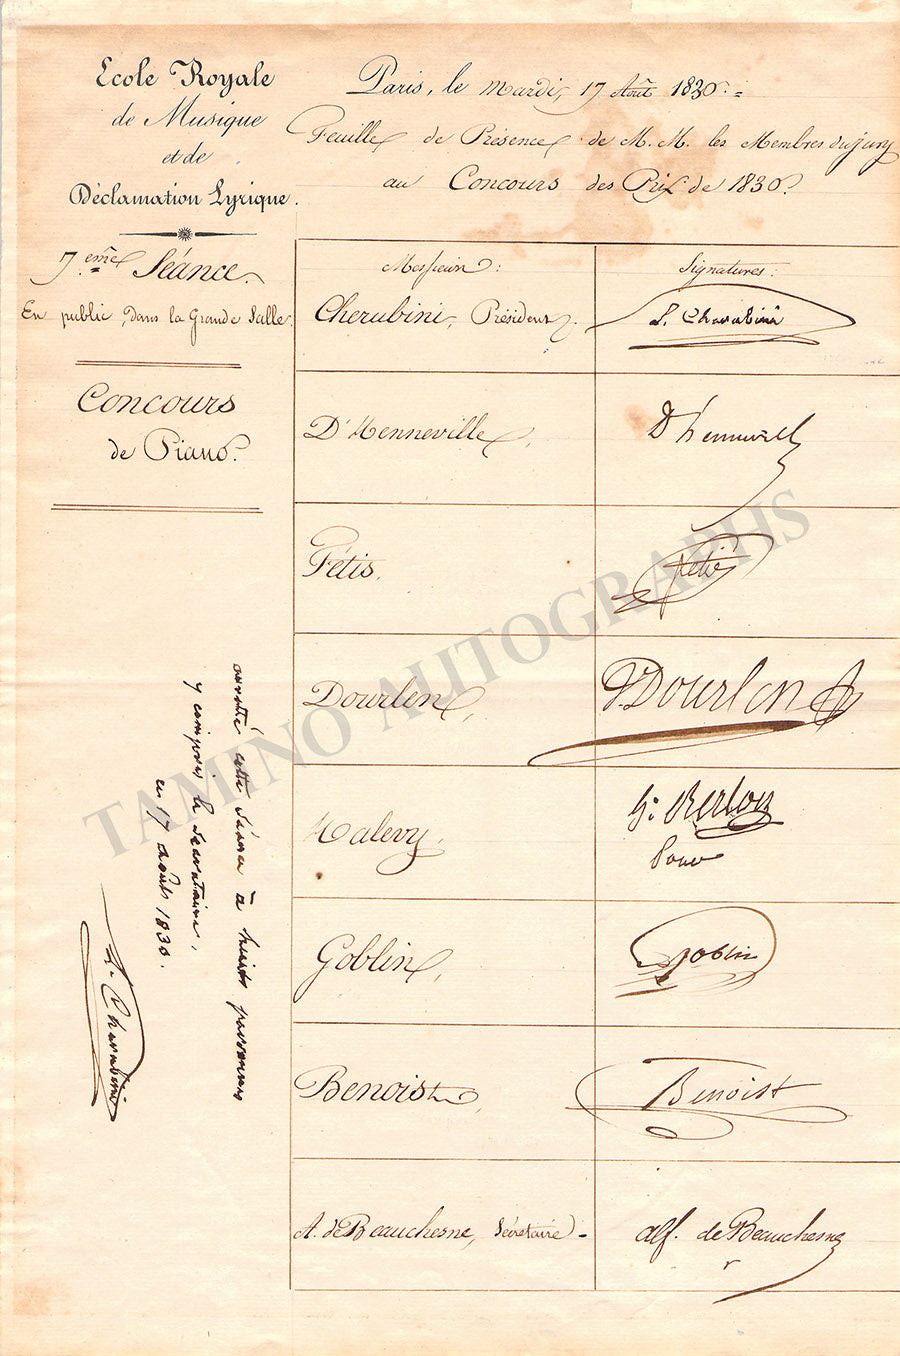 Ecole Royale
de Musique
et de
Déclamation Lyrique.
7.ème Séance.
En public, dans la Grande Salle.
Concours
de Piano.
Paris, le Mardi, 17 Août 1830.
Feuille de Présence de M.M. les Membres du jury
au Concours des Prix de 1830.
Messieurs : Signatures :
Cherubini, Président. L. Cherubini
D'Henneville, D'henneville
Fétis. fétis
Dourlen, V. Dourlen
Halevy. h: Berton
Pour
Goblin, Goblin
Benoist, Benoist
A. de Beauchesne, Sécretaire. alf. de Beauchesne
arrêté cette séance à huit personnes
y compris le secrétaire,
ce 17 août 1830.
L. Cherubini
TAMINO AUTOGRAPHS